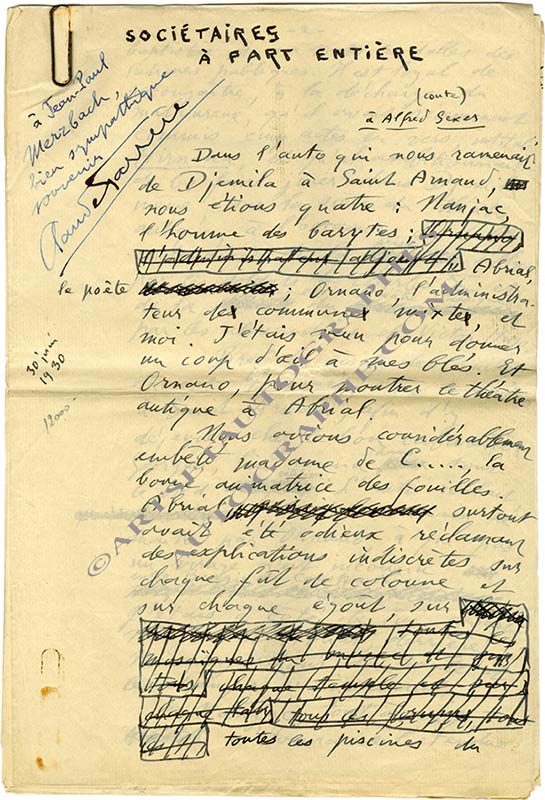 SOCIÉTAIRES
À PART ENTIÈRE
(conte)
à Alfred Gexer
à Jean-Paul
Merzbach,
bien sympathique
souvenir
Claude Farrère
Dans l'auto qui nous ramenait
de Djemila à Saint Arnaud,
nous étions quatre : Nanjac,
l'homme des barytes ;
l'administrateur adjoint Abrial,
le poète ; Ornano, l'administra-
teur des communes mixtes, et
moi. J'étais venu pour donner
un coup d'œil à mes blés. Et
Ornano, pour montrer le théâtre
antique à Abrial.
30 juin
1930
12000-
Nous avions considérablement
embêté madame de C....., la
bonne animatrice des fouilles.
Abrial surtout
avait été odieux réclamant
des explications indiscrètes sur
chaque fût de colonne et
sur chaque égoût, sur
toutes
chaque temple et
chaque
toutes les piscines du
©ARTSETAUTOGRAPHIE
AUTOGRAPHE.COM